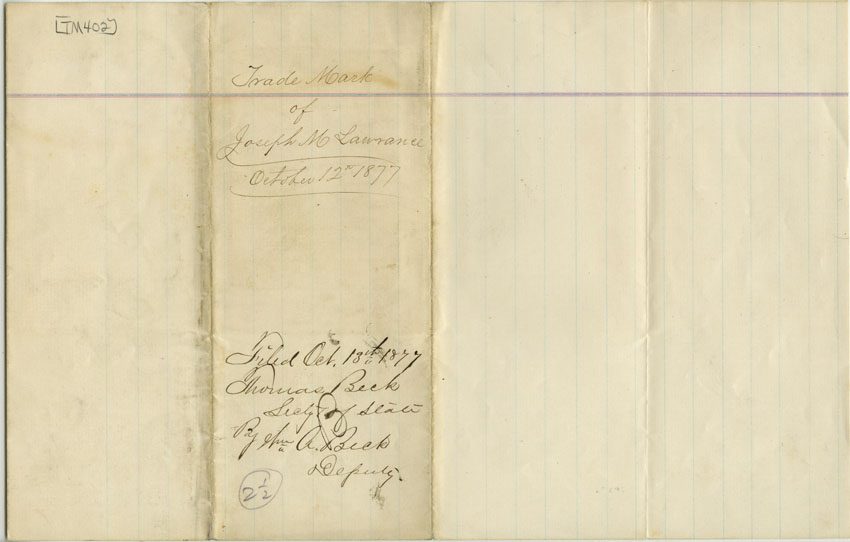 [TM402]
Trade Mark
of
Joseph M Lawrance
October 12th 1877
Filed Oct. 13th 1877
Thomas Beck
Secty of State
By Wm A. Beck
Deputy
2 1/2